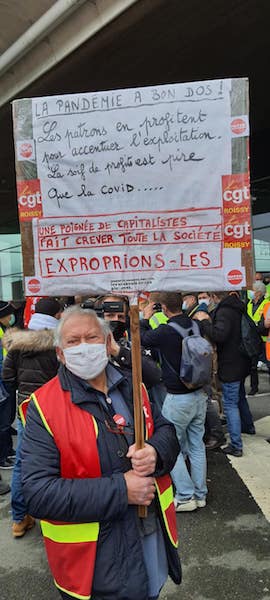 LA PANDÉMIE A BON DOS !
Les patrons en profitent
pour accentuer l'exploitation.
La soif de profits est pire
Que la covid.....
cgt
ROISSY
cgt
ROISSY
cgt
ROISSY
UNE POIGNÉE DE CAPITALISTES
FAIT CREVER TOUTE LA SOCIÉTÉ
EXPROPRIONS-LES